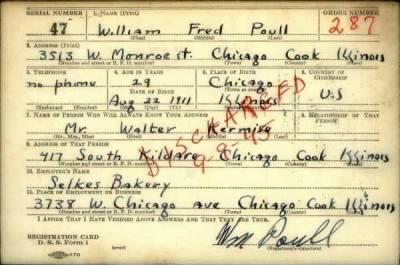 SERIAL NUMBER 1. NAME (Print) ORDER NUMBER
47 William Fred Poull 287
(First) (Middle) (Last)
2. ADDRESS (Print)
3513 W. Monroe st. Chicago Cook Illinois
(Number and street or R. F. D. number) (Town) (County) (State)
3. TELEPHONE 4. AGE IN YEARS 5. PLACE OF BIRTH 6. COUNTRY OF CITIZENSHIP
no phone 29 Chicago
DATE OF BIRTH
Aug 22 1911 Illinois U.S
DISCHARGED
7. NAME OF PERSON WHO WILL ALWAYS KNOW YOUR ADDRESS 8. RELATIONSHIP OF THAT PERSON
Mr Walter Kermise
(Mr., Mrs., Miss) (First) (Middle) (Last)
9. ADDRESS OF THAT PERSON
417 South Kildare Chicago Cook Illinois
(Number and street or R. F. D. number) (Town) (County) (State)
10. EMPLOYER'S NAME
Selkes Bakery
11. PLACE OF EMPLOYMENT OR BUSINESS
3738 W. Chicago ave Chicago Cook Illinois
(Number and street or R. F. D. number) (Town) (County) (State)
I AFFIRM THAT I HAVE VERIFIED ABOVE ANSWERS AND THAT THEY ARE TRUE.
REGISTRATION CARD
D. S. S. Form 1
Wm Poull
(Registrant's signature)